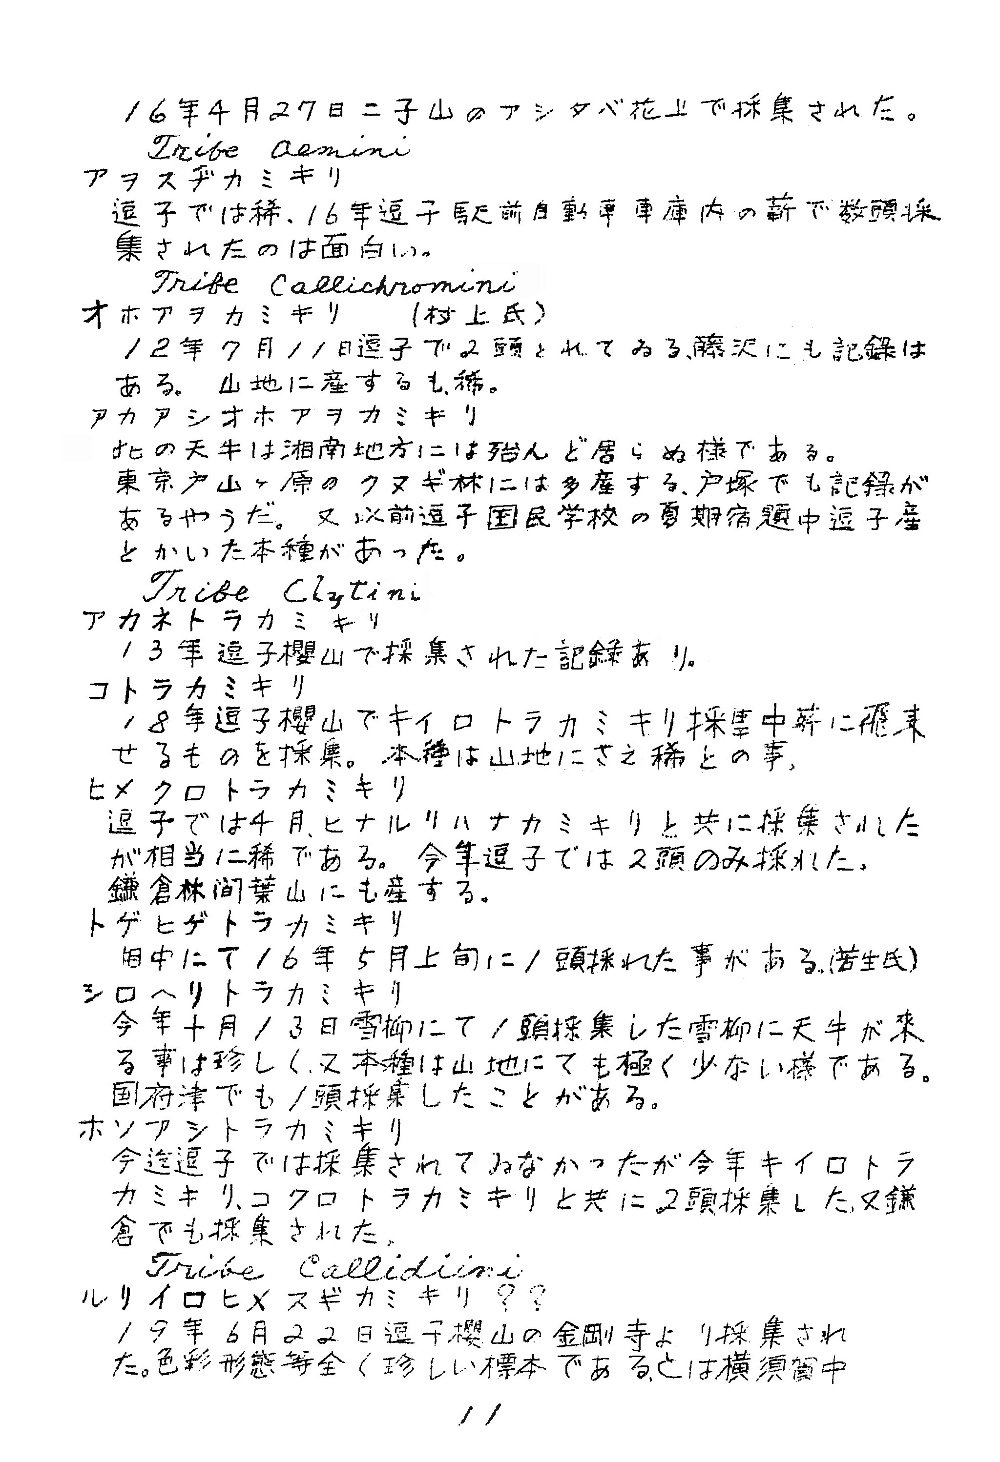 16年4月27日二子山のアシタバ花上で採集された。
Tribe Oemini
アヲスヂカミキリ
逗子では稀、16年逗子駅前自動車車庫内の薪で数頭採
集されたのは面白い。
Tribe Callichromini
オホアヲカミキリ　（村上氏）
12年7月11日逗子で2頭とれてゐる、藤沢にも記録は
ある。山地に産するも、稀。
アカアシオホアヲカミキリ
此の天牛は湘南地方には殆んど居らぬ様である。
東京戸山ヶ原のクヌギ林には多産する、戸塚でも記録が
あるやうだ。又以前逗子国民学校の夏期宿題中逗子産
とかいた本種があった。
Tribe Clytini
アカネトラカミキリ
13年逗子櫻山で採集された記録あり。
コトラカミキリ
18年逗子櫻山でキイロトラカミキリ採集中薪に飛来
せるものを採集。本種は山地にさえ稀との事、
ヒメクロトラカミキリ
逗子では4月、ヒナルリハナカミキリと共に採集された
が相当に稀である。今年逗子では2頭のみ採れた、
鎌倉林間葉山にも産する。
トゲヒゲトラカミキリ
田中にて16年5月上旬に1頭採れた事がある、(若生氏)
シロヘリトラカミキリ
今年十月13日雪柳にて1頭採集した雪柳に天牛が来
る事は珍しく、又本種は山地にても極く少ない様である。
国府津でも1頭採集したことがある。
ホソアシトラカミキリ
今迄逗子では採集されてゐなかったが今年キイロトラ
カミキリ、コクロトラカミキリと共に2頭採集した、又鎌
倉でも採集された、
Tribe Callidiini
ルリイロヒメスギカミキリ??
19年6月22日逗子櫻山の金剛寺より採集され
た。色彩形態等全く珍しい標本である、とは横須賀中
11